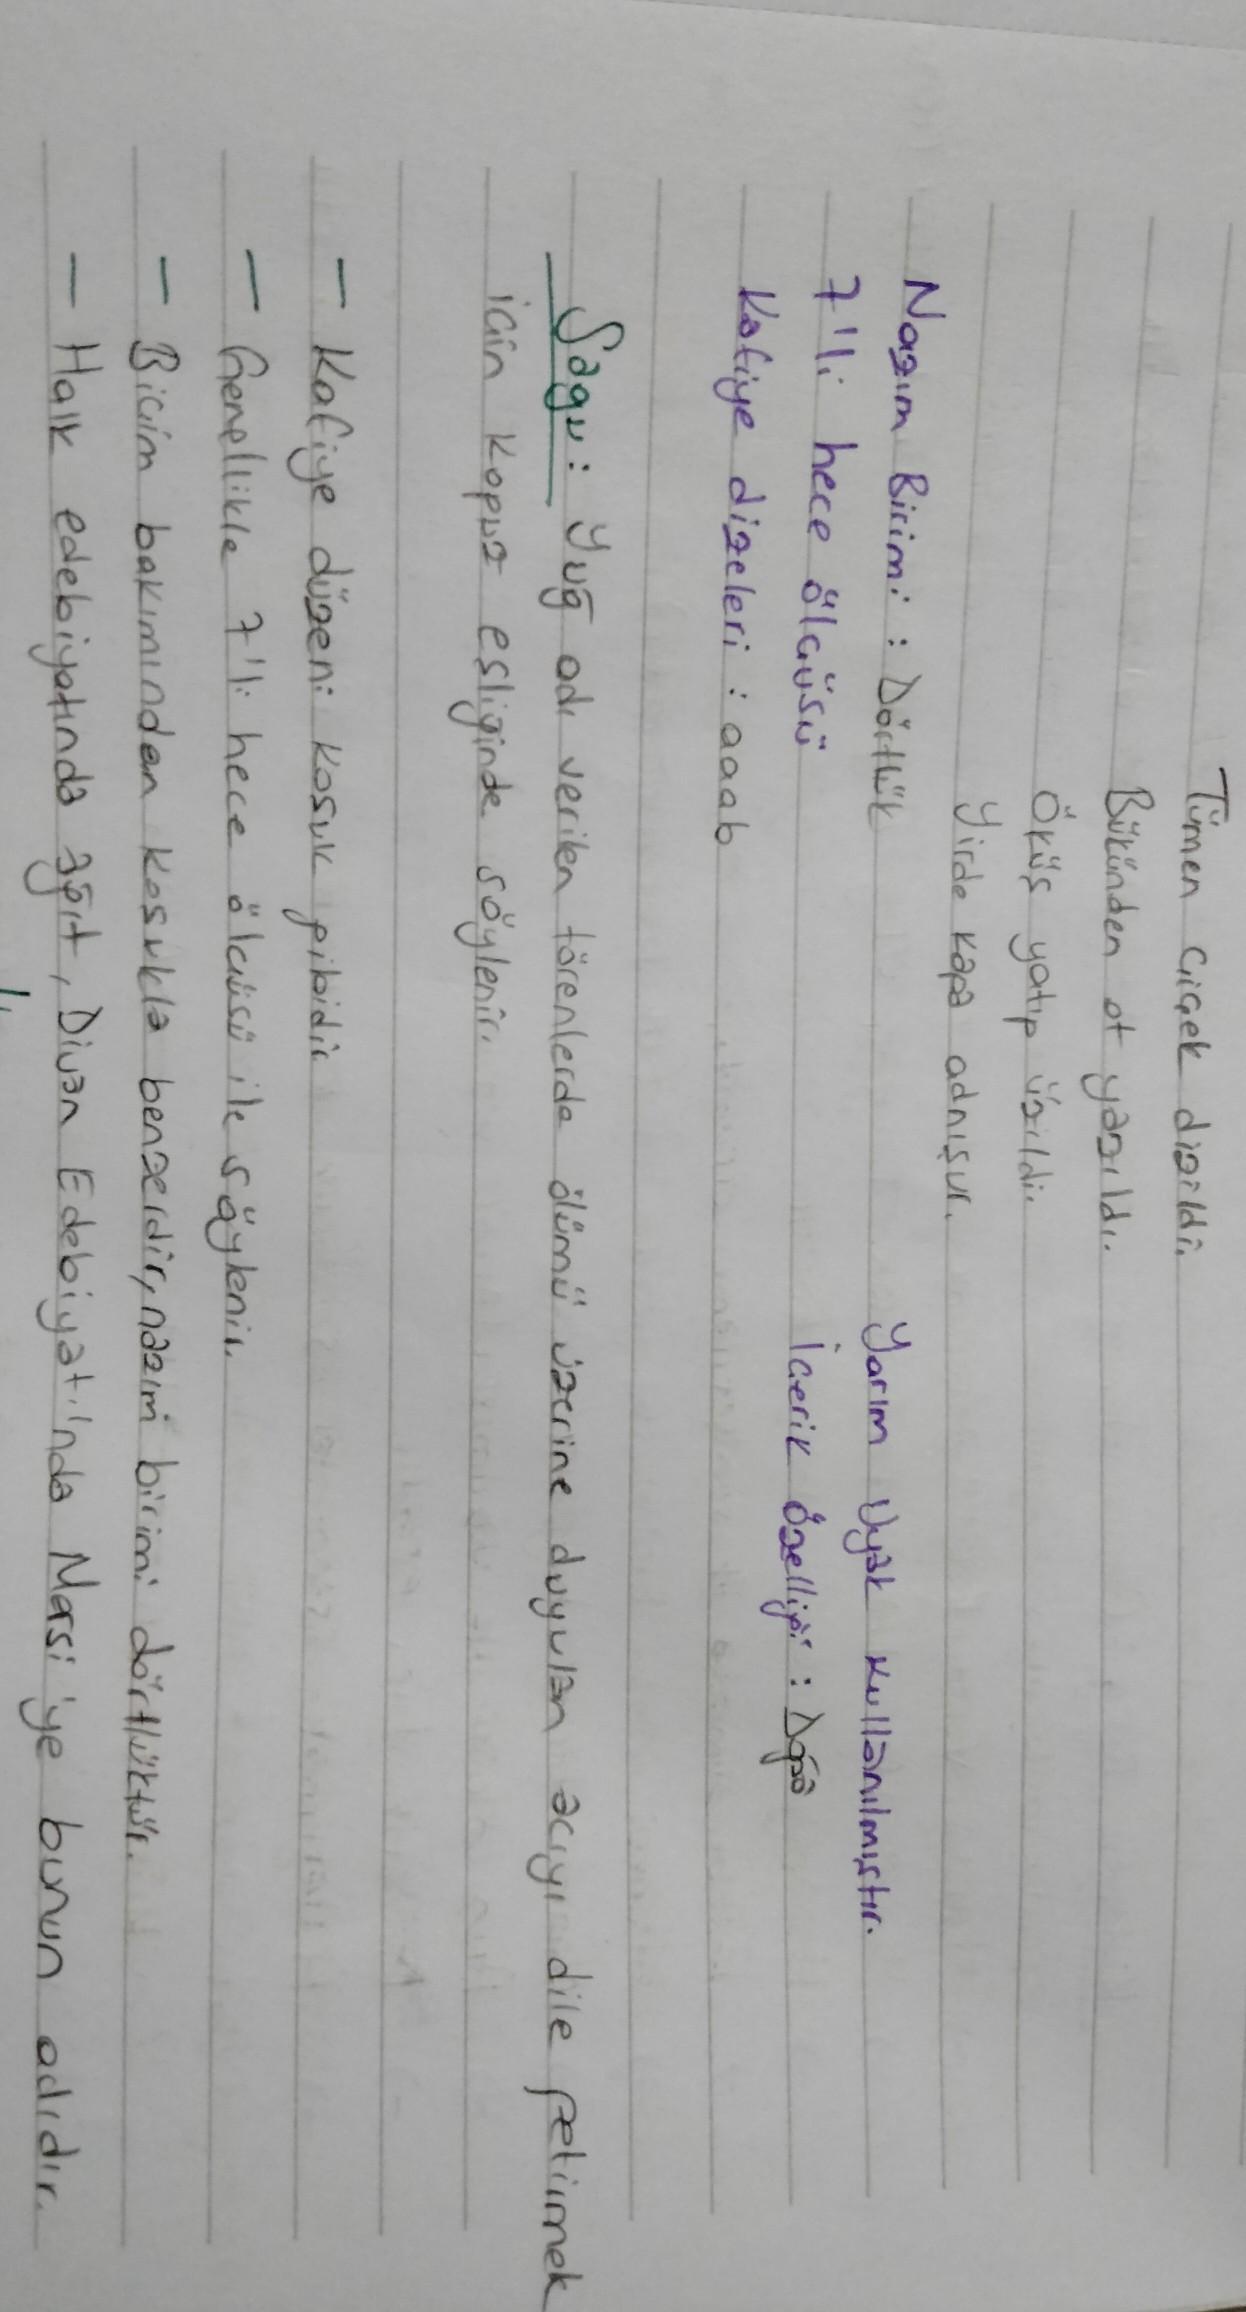 Tümen çiçek dizildi.
Bükünden ot yazıldı.
Öküş yatıp üzildi.
Yirde kopa adnışur.
Nazım Birimi : Dörtlük
Yarım Uyak Kullanılmıştır.
7'li hece ölçüsü
İçerik özelliği : Doğa
Kafiye dizeleri : aaab
Sagu: Yuğ adı verilen törenlerde ölümü üzerine duyulan acıyı dile getirmek
için kopuz eşliğinde söylenir.
– Kafiye düzeni koşuk gibidir.
– Genellikle 7'li hece ölçüsü ile söylenir.
– Biçim bakımından koşukla benzerdir, nazım birimi dörtlüktür.
– Halk edebiyatında ağıt, Divan Edebiyatı'nda Mersi'ye bunun adıdır.